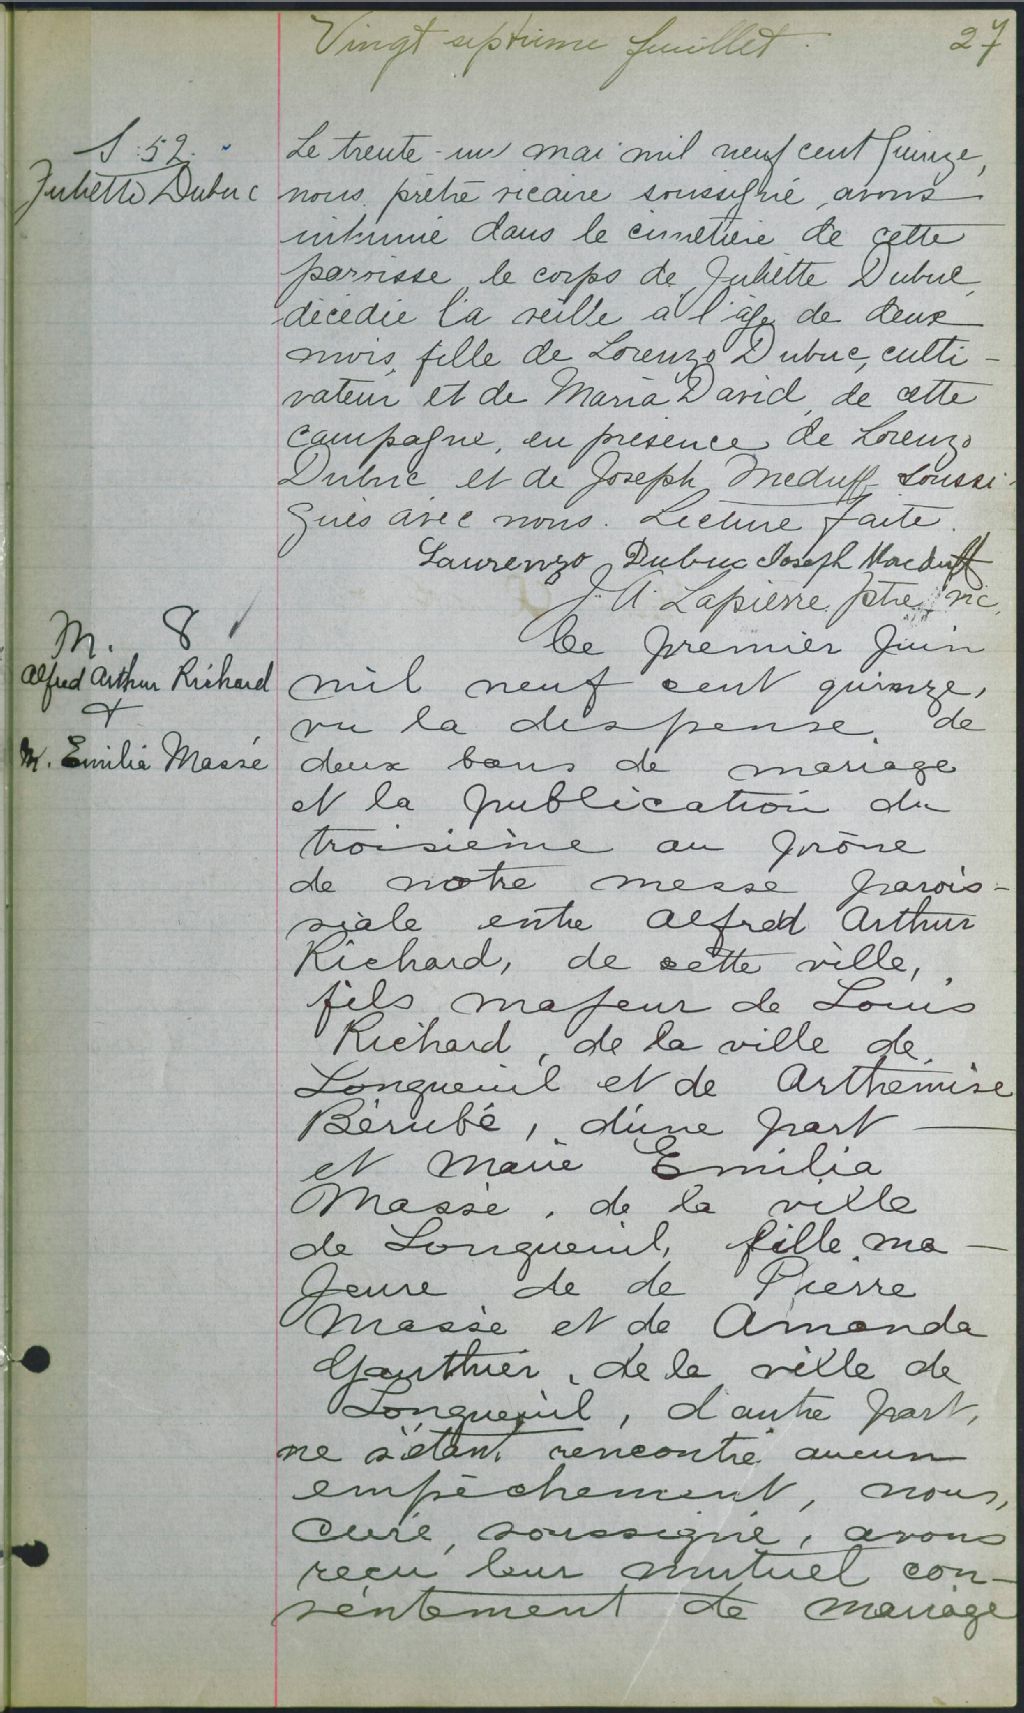 Vingt septième feuillet. 27
S. 52.
Juliette Dubuc
Le trente-un mai mil neuf cent quinze,
nous prêtre vicaire soussigné, avons
inhumé dans le cimetière de cette
paroisse le corps de Juliette Dubuc,
décédée la veille à l'âge de deux
mois, fille de Lorenzo Dubuc, culti-
vateur et de Maria David, de cette
campagne, en présence de Lorenzo
Dubuc et de Joseph Meduff soussi-
gnés avec nous. Lecture faite.
Laurenzo Dubuc Joseph Macduff
J. A. Lapierre ptre vic.
M. 8
Alfred Arthur Richard
+
M. Emilia Massé
Le premier juin
mil neuf cent quinze,
vu la dispense de
deux bans de mariage
et la publication du
troisième au prône
de notre messe parois-
siale entre Alfred Arthur
Richard, de cette ville,
fils majeur de Louis
Richard, de la ville de
Longueuil et de Arthémise
Bérubé, d'une part
et Marie Emilia
Massé, de la ville
de Longueuil, fille ma-
jeure de de Pierre
Massé et de Amanda
Gauthier, de la ville de
Longueuil, d'autre part,
ne s'étant rencontré aucun
empêchement, nous,
curé, soussigné, avons
reçu leur mutuel con-
sentement de mariage